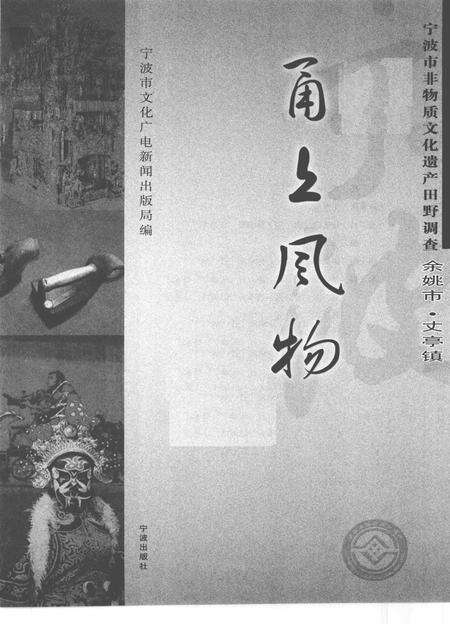 宁波市非物质文化遗产田野调查 余姚市·丈亭镇
甬上风物
宁波市文化广电新闻出版局编
宁波出版社